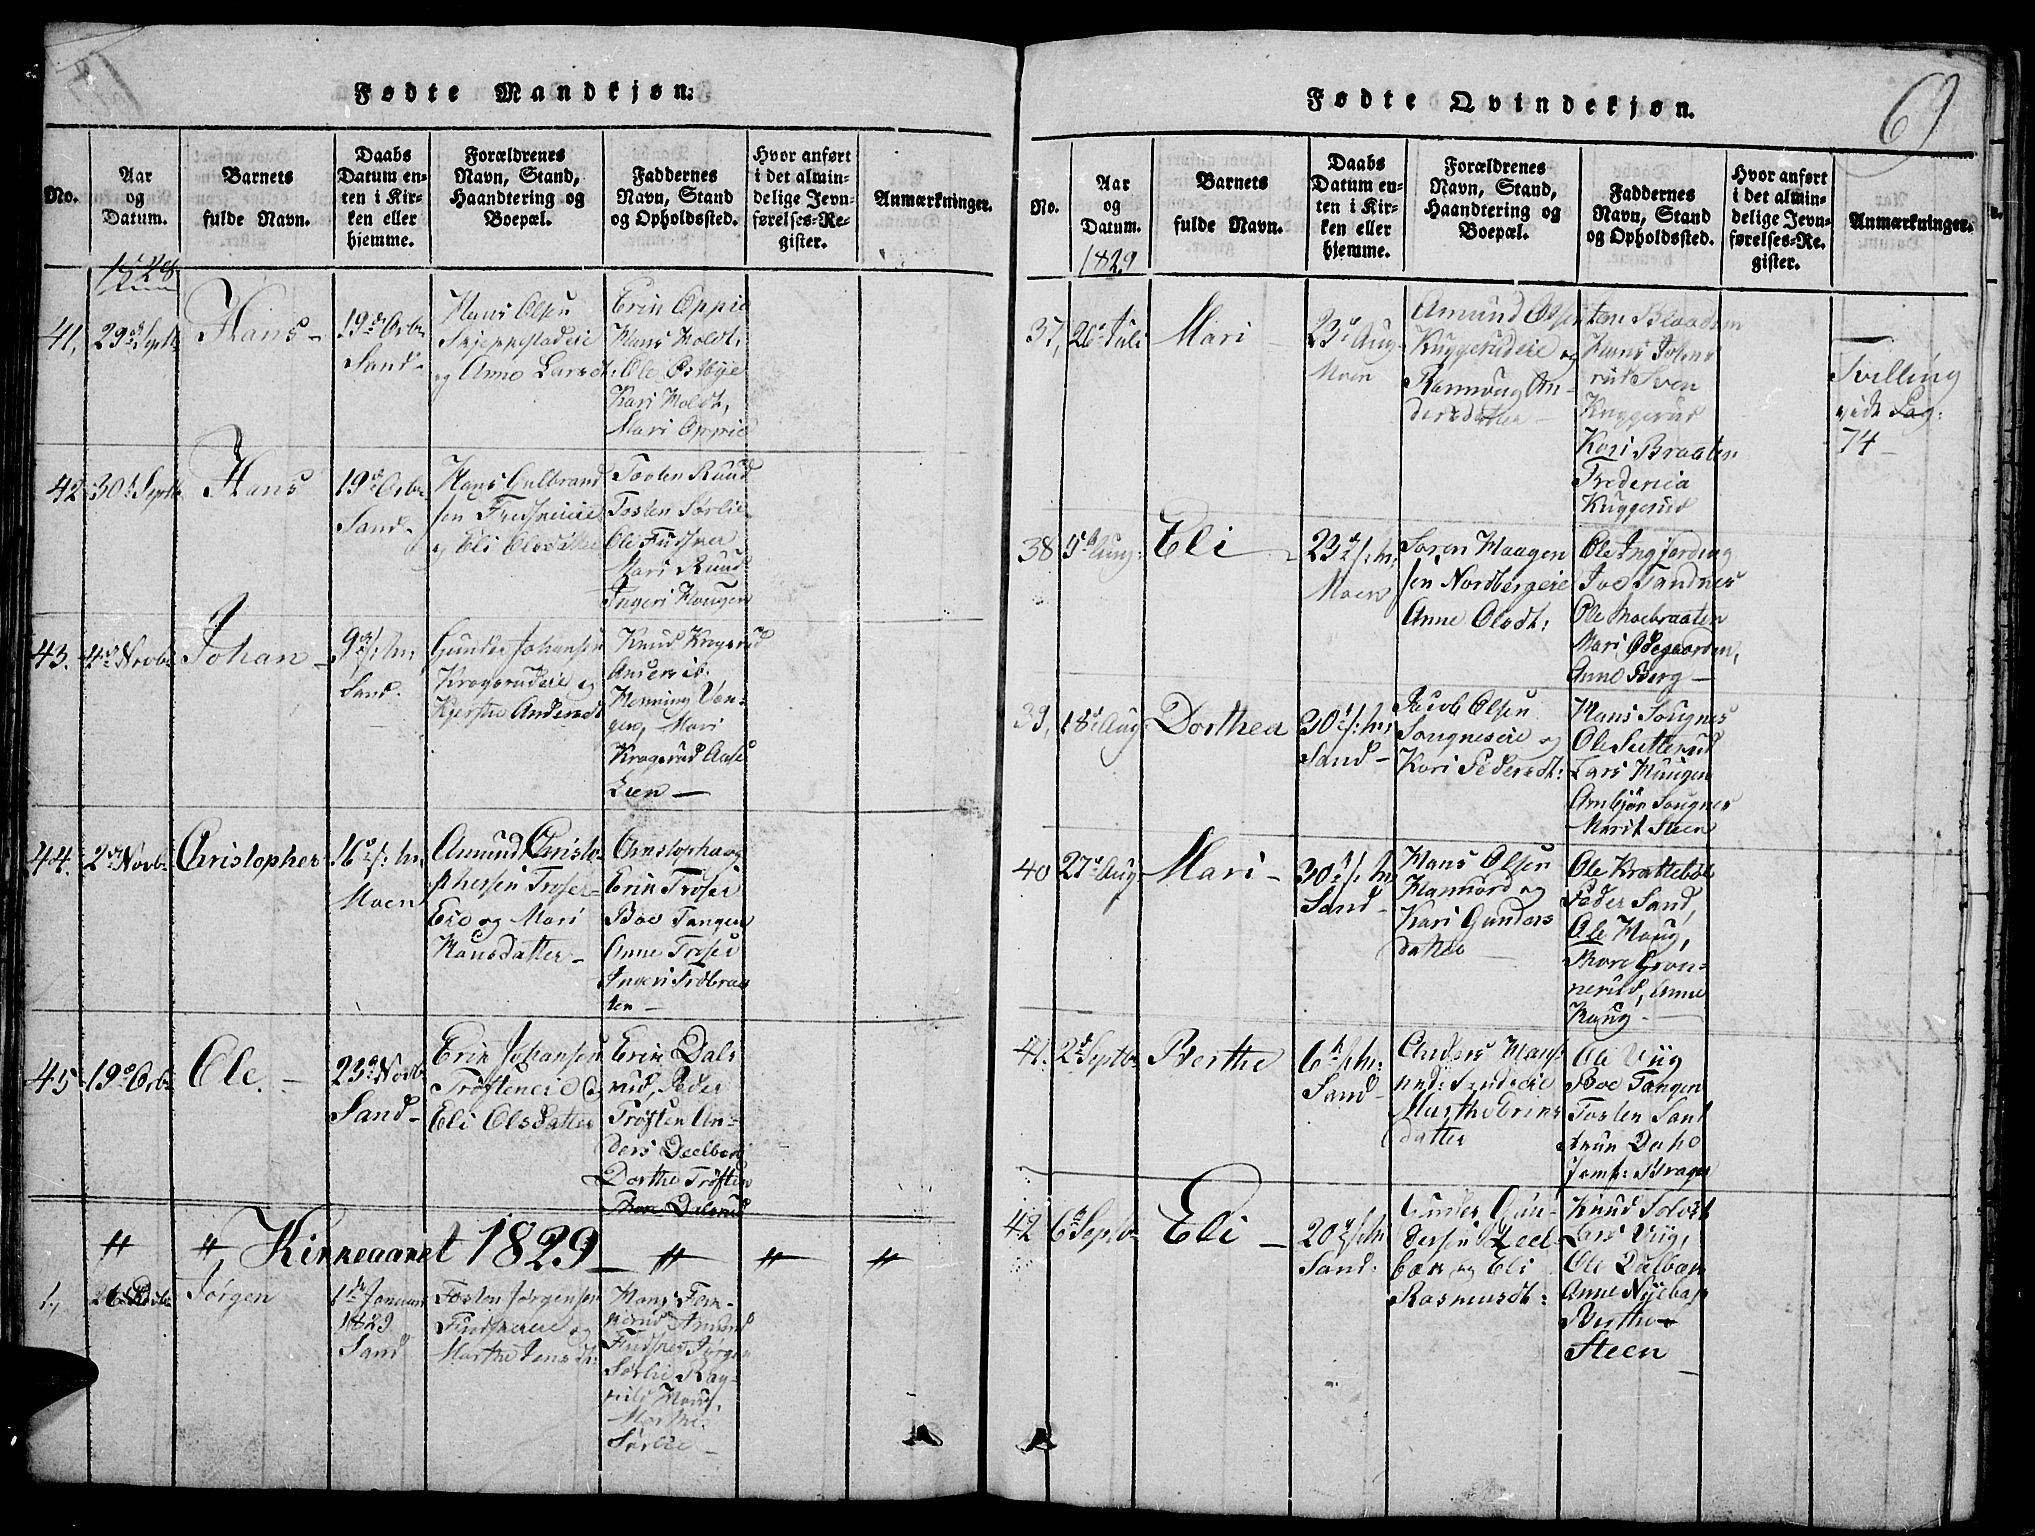 Fødte Mandkjøn.
No.
Aar og Datum.
Barnets fulde Navn.
Daabs Datum enten i Kirken eller hjemme.
Forældrenes Navn, Stand, Haandtering og Boepæl.
Faddernes Navn, Stand og Opholdssted.
Hvor anført i det almindelige Jevnførelses-Register.
Anmærkninger.
1828
41,
29de Septb
Hans
19de Octbr
Sand
Hans Olsen
Skjeppestadeie
og Anne Larsdt:
Erik Oppie
Hans Holdt,
Ole Østbye
Kari Holdt,
Mari Oppie
42
30d Septb
Hans
19de Octbr
Sand
Hans Gulbrand
sen
og Eli Olsdatter
Torsten Ruud
Tosten Sørlie
Ole
Mari Ruud
Ingeri Hougen
43.
4de Novbr
Johan
9de
Sand
Gunder Johansen
Kragerudeie og
Kjersti Andersdt
Knud Kragerud
Anders ib.
Henning Van-
gen, Mari
Kragerud Aase
Lien
44.
2de Novbr
Christopher
16de
Moen
Amund Christo-
phersen Troser-
Eie og Mari
Hansdatter
Christopher og
Erik Troser
Boe Tangen
Anne Troser
Ingeri Trøbraa
ten
45
19de Octbr
Ole.
23de Novbr
Sand
Erik Johansen
Trøfteneie og
Eli Olsdatter
Erik Dals
rud, Peder
Trøften An-
ders Deelbek
Dorthe Trøften
Dalsrud
" " Kirkeaaret 1829 " " "
1,
26de
Jørgen
1ste Januar
1829
Sand
Tosten Jørgensen
og
Marthe Jensdt:
Hans
Amund
Jørgen
Sørlie Rag-
nild Haug,
Marthe
Sørlie
Fødte Qvindekjøn.
69
No.
Aar og Datum.
Barnets fulde Navn.
Daabs Datum enten i Kirken eller hjemme.
Forældrenes Navn, Stand, Haandtering og Boepæl.
Faddernes Navn, Stand og Opholdssted.
Hvor anført i det almindelige Jevnførelses-Register.
Anmærkninger.
1829
37,
26de Juli
Mari
23de Aug
Moen
Amund Olsen
Kuggerudeie og
Rannoug An-
dersdatter
Hans Johns
rud Sven
Kuggerud
Kari Braaten
Frederica
Kuggerud
Tvilling
vide Pag:
74
38
5te Aug:
Eli
23de
Moen
Søren Haagen
sen Nordbergeie
Anne Olsdt:
Ole
Joe Sandnes
Ole Moebraaten
Mari Ødegaarden,
Anne Berg
39,
18de Aug
Dorthea
30te
Sand
Jacob Olsen
Sougneseie og
Kari Pedersdt:
Hans Sougnes
Ole Sætterud
Lars Haugen
Ambjør Sougnes
Marit Steen
40
27de Aug
Mari
30te
Sand
Hans Olsen
og
Kari Gunders
datter
Ole Krattebøl
Peder Sand,
Ole Haug,
Thore Grøn-
nerud, Anne
Haug
41.
2de Septbr
Berthe
6te
Sand
Anders Hans
Marthe Eriks
datter
Ole Viig
Boe Tangen
Tosten Sand
Brager
42
6te Septbr
Eli
20de
Sand
Gunder Gun-
dersen Deel-
bæk og Eli
Rasmusdt:
Knud
Lars Viig,
Ole Dalbak
Anne Nyebak
Berthe
Steen